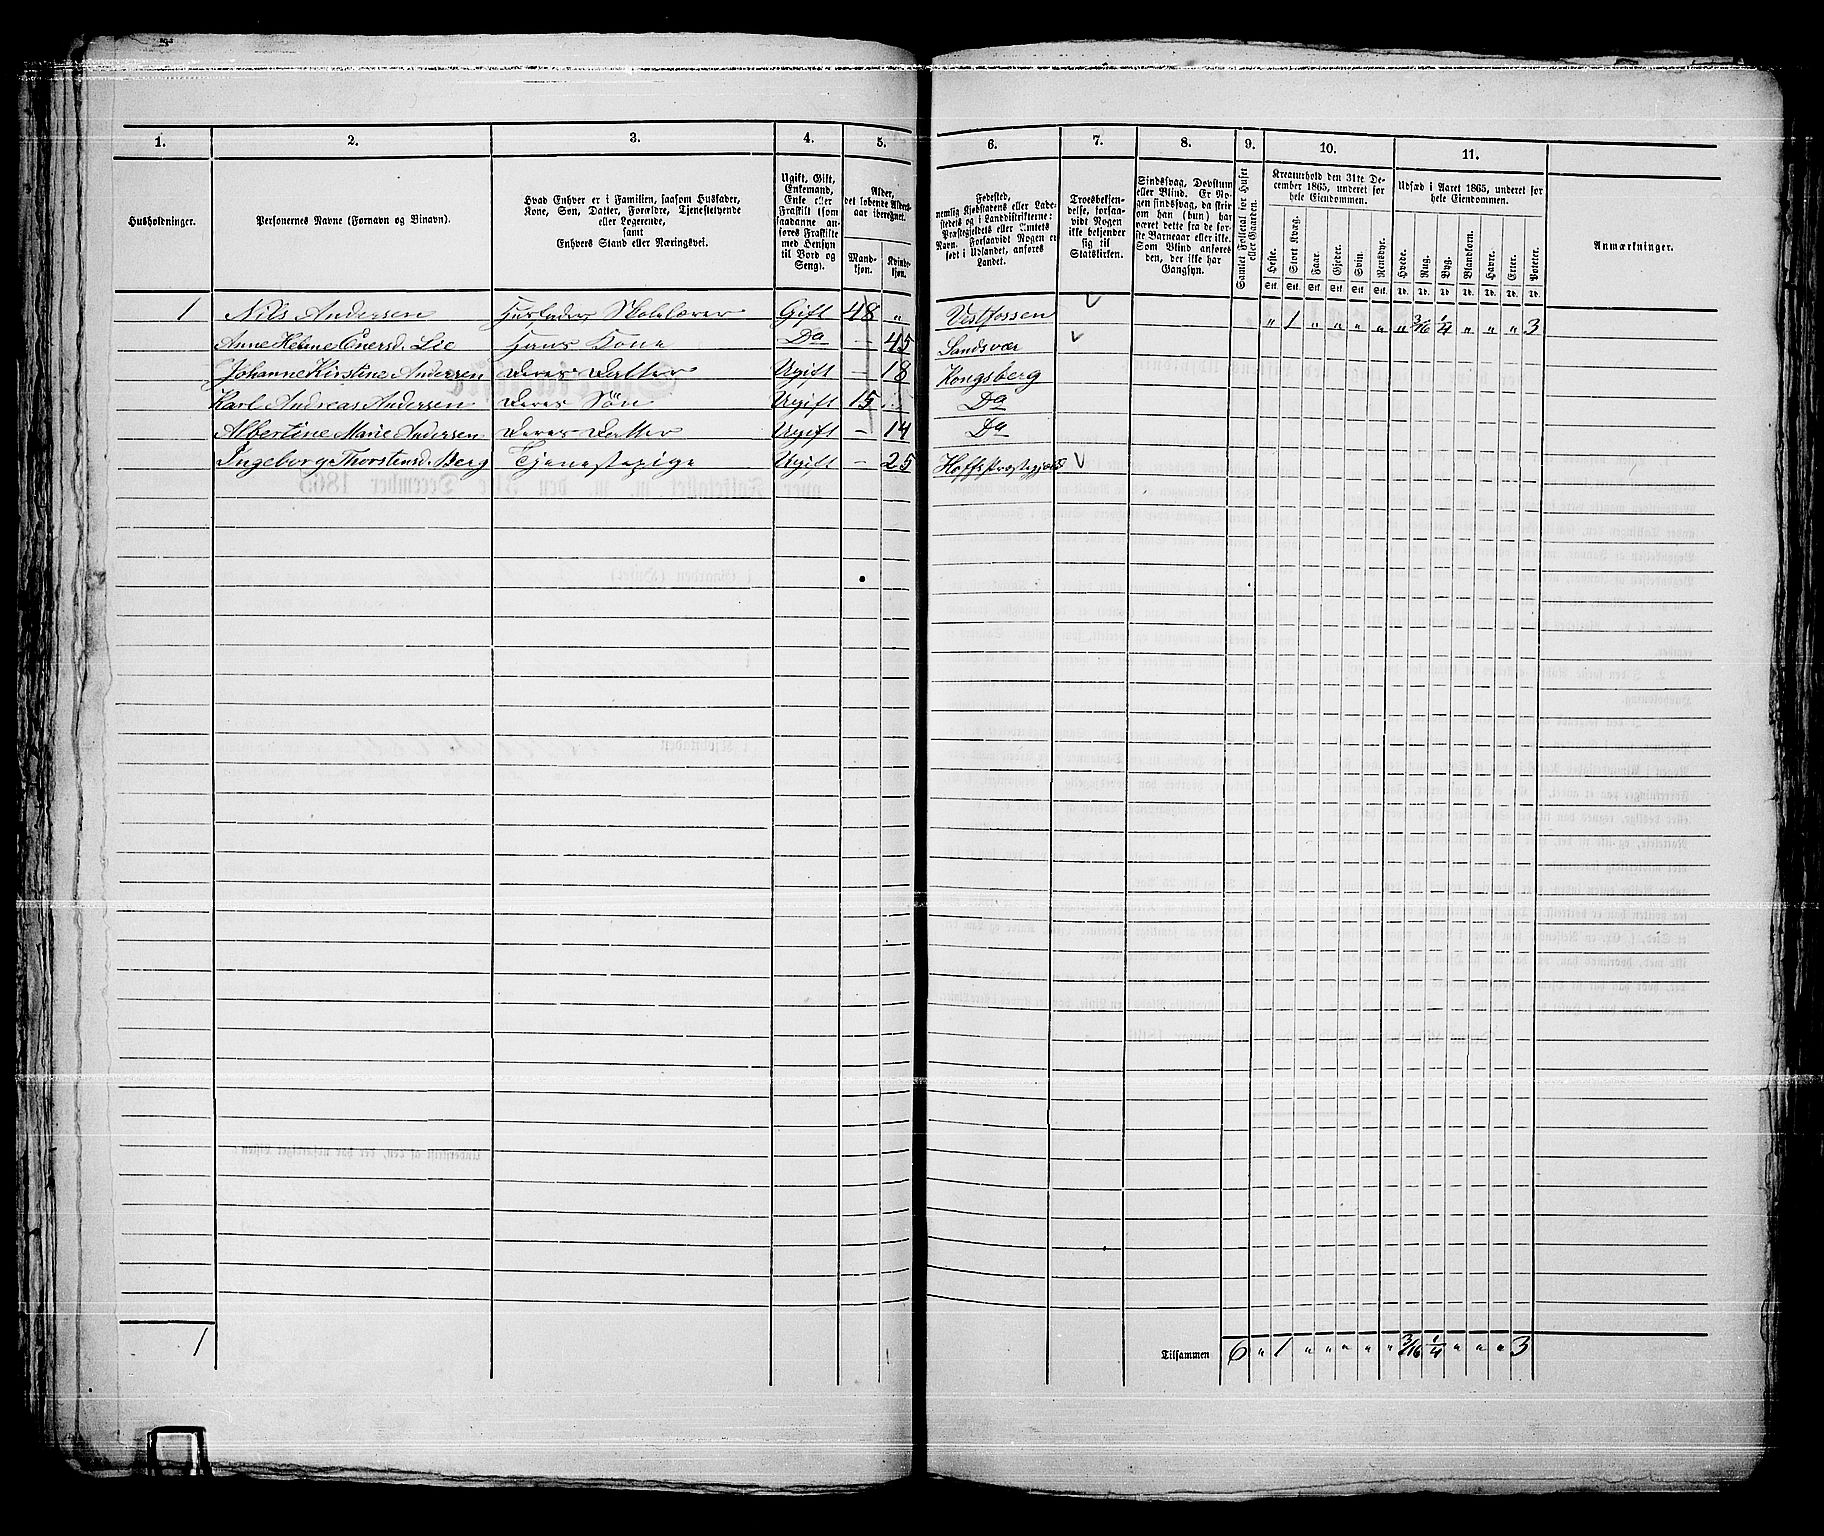 1. 2. 3. 4. 5. 6. 7. 8. 9. 10. 11.
Husholdninger.
Personernes Navne (Fornavn og Binavn).
Hvad Enhver er i Familien, saasom Husfader,
Kone, Søn, Datter, Forældre, Tjenestetyende
eller Logerende,
samt
Enhvers Stand eller Næringsvei.
Ugift, Gift,
Enkemand,
Enke eller
Fraskilt (som
saadanne an-
føres Fraskilte
med Hensyn
til Bord og
Seng).
Alder,
det løbende Alders-
aar iberegnet.
Mand-
kjøn.
Kvinde-
kjøn.
Fødested,
nemlig Kjøbstadens eller Lade-
stedets og i Landdistrikterne:
Præstegjeldets eller Amtets
Navn. I Forsaavidt Nogen er
født i Udlandet, anføres
Landet.
Troesbekjen-
delse, forsaa-
vidt Nogen
ikke bekjender
sig til
Statskirken.
Sindssvag, Døvstum
eller Blind. Er No-
gen sindssvag, da skrives
om han (hun) har
været dette fra de før-
ste Barneaar eller ikke.
Som Blind anføres
den, der ikke har
Gangsyn.
Samlet Folketal for Huset
eller Gaarden.
Kreaturhold den 31te De-
cember 1865, underet for
hele Eiendommen.
Heste. Stort Kvæg. Faar. Gjeder. Svin. Rensdyr.
Stk. Stk. Stk. Stk. Stk. Stk.
Udsæd i Aaret 1865, underet for
hele Eiendommen.
Hvede. Rug. Byg. Blandkorn. Havre. Erter. Poteter.
Td. Td. Td. Td. Td. Td. Td.
Anmærkninger.
1 Nils Andersen Husfader, Skolelærer Gift 48 „ Vestfossen „ 1 „ „ „ „ „ 3/16 1/4 „ „ „ 3
Anne Helene Enersd. Lie Hans Kone Do — 45 Sandsvær
Johanne Kirstine Andersen Deres Datter Ugift — 18 Kongsberg
Karl Andreas Andersen Deres Søn Ugift 15 Do
Albertine Marie Andersen Deres Datter Ugift — 14 Do
Ingeborg Thorstensd. Berg Tjenestepige Ugift — 25 Hoffs Præstegjæld
1 Tilsammen 6 „ 1 „ „ „ „ „ 3/16 1/4 „ „ „ 3